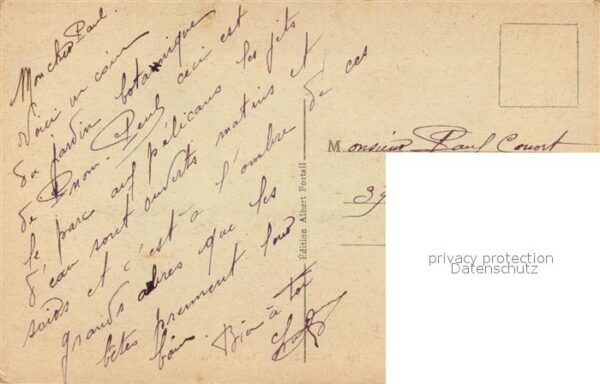 Mon cher Paul.
Voici un coin
du jardin botanique
de Pnom. Penh ceci est
le parc aux pélicans les jets
d'eau sont ouverts matins et
soirs et c'est à l'ombre de ces
grands arbres que les
bêtes prennent leur
bain. Bien à toi
Edition Albert Portail
Monsieur Paul Couort
39
privacy protection
Datenschutz